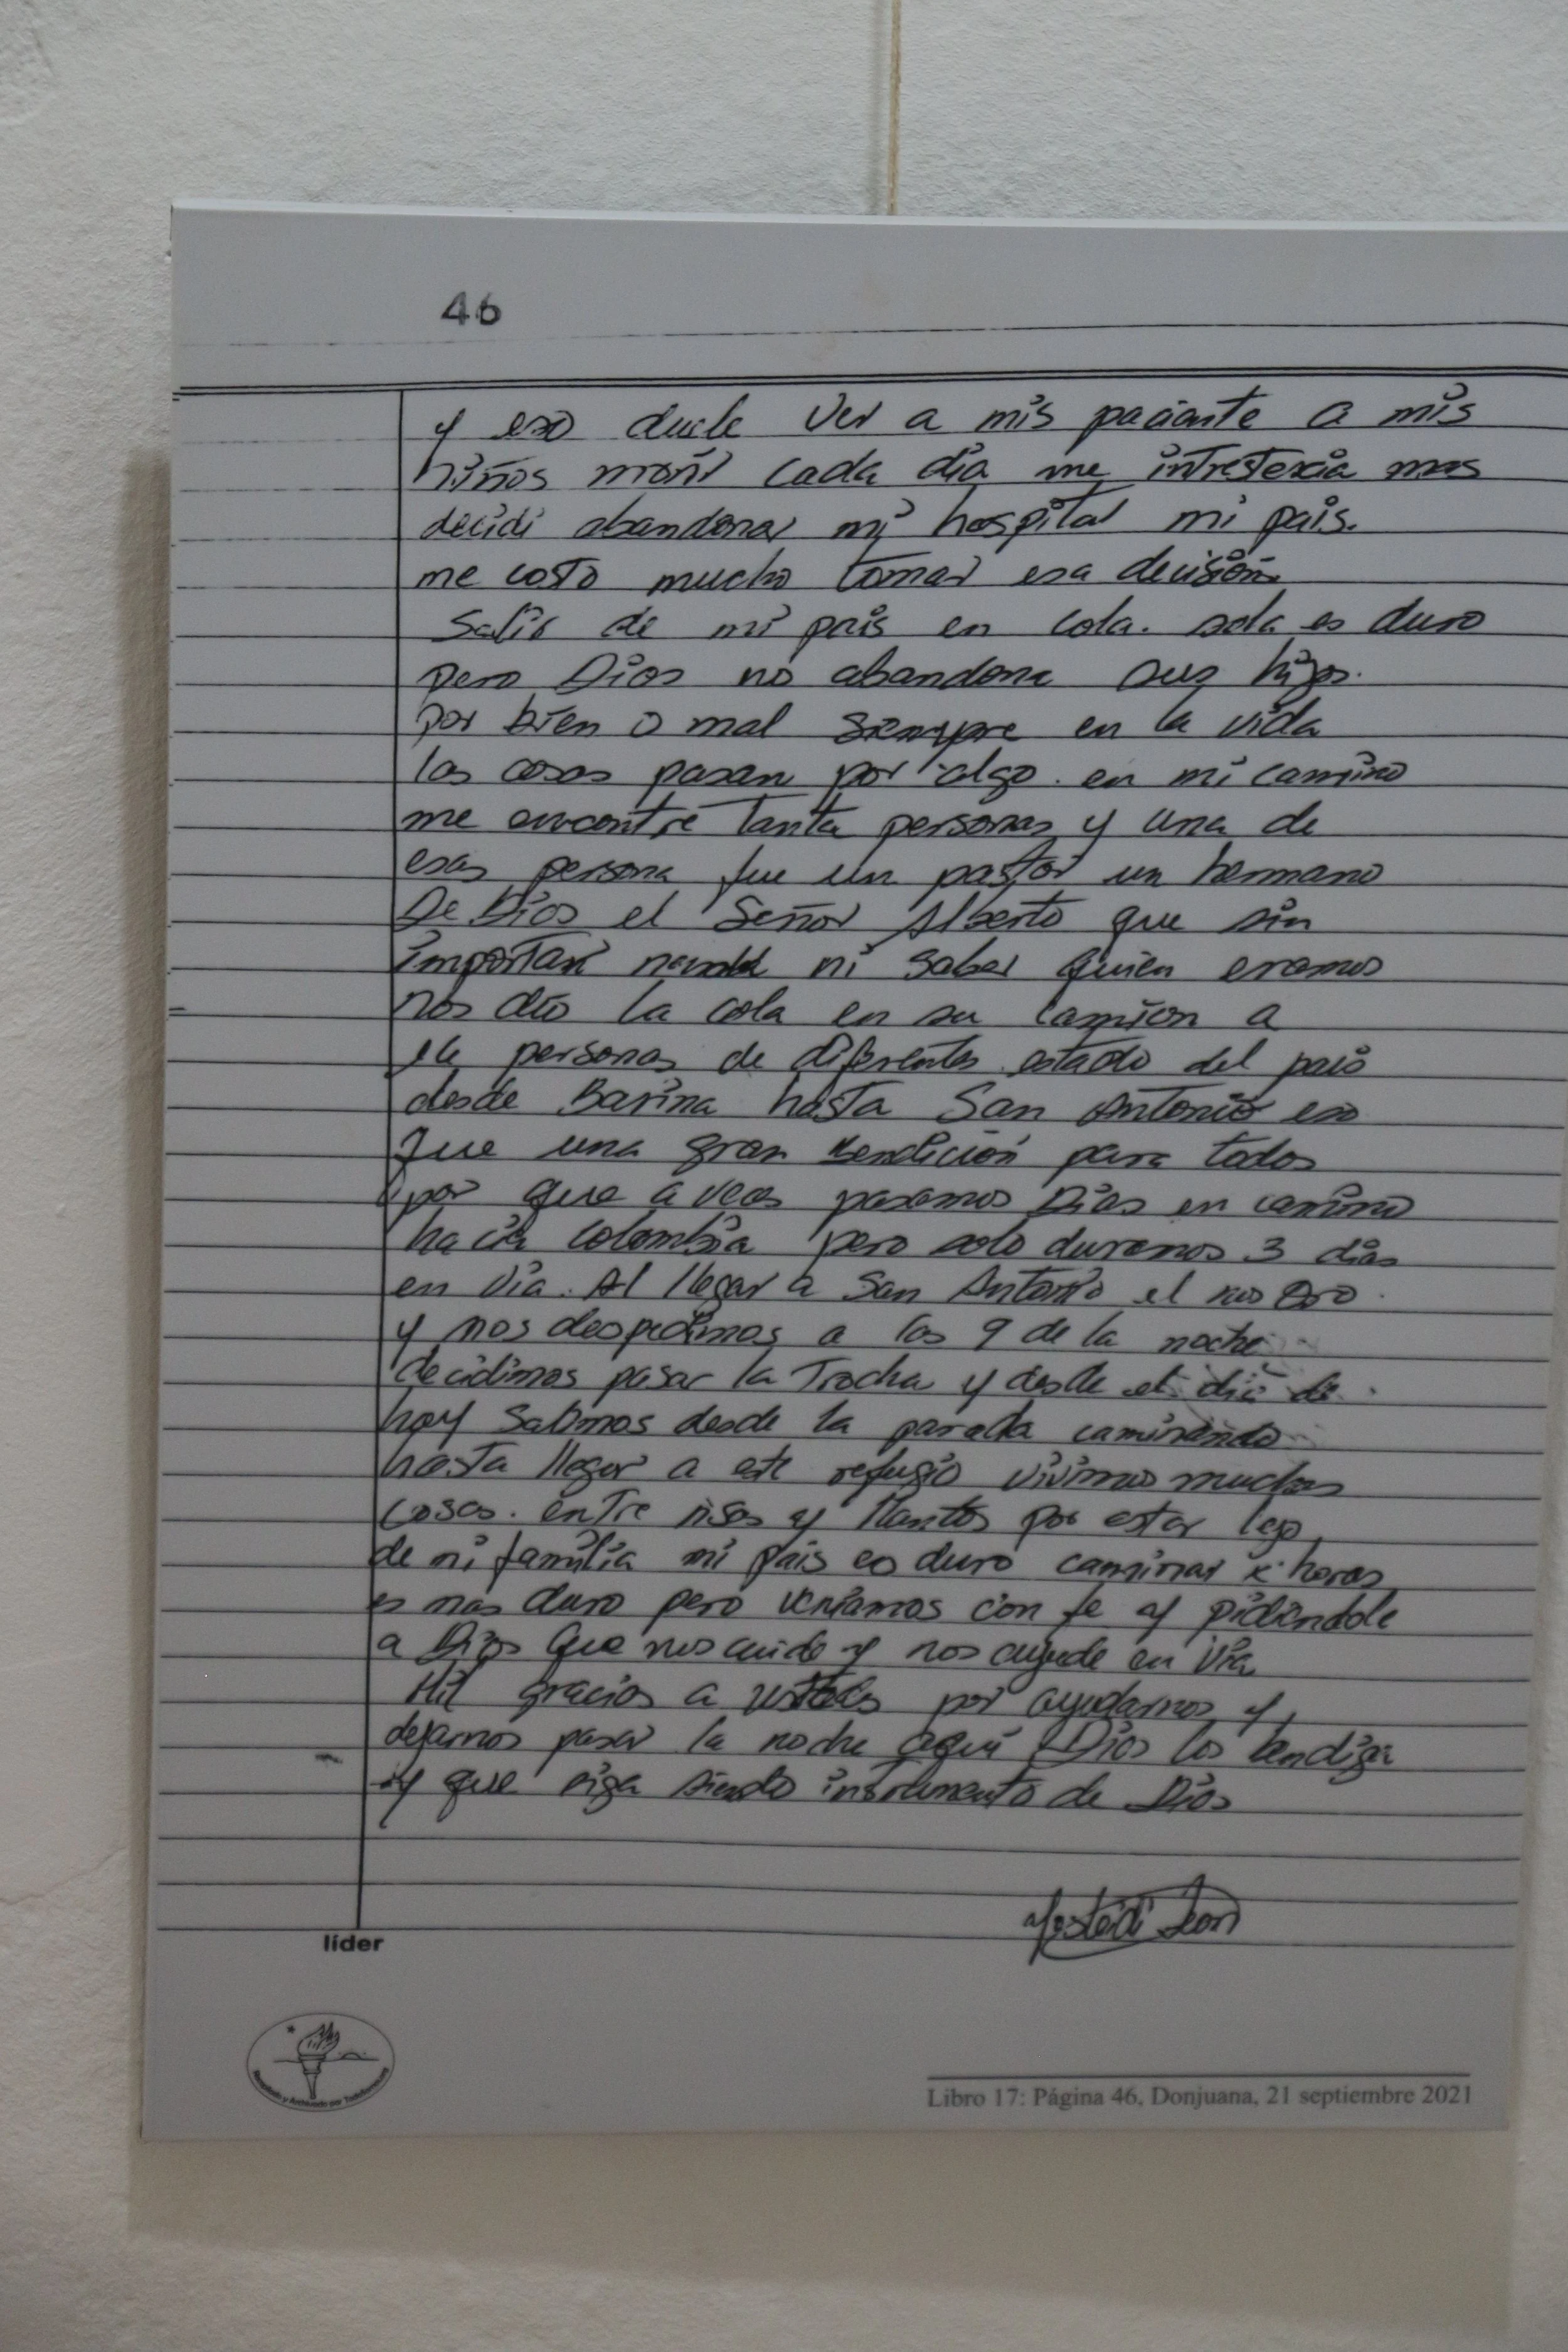 46
y eso duele ver a mis paciante a mis
niños morir cada dia me intresteria mas
decidi abandonar mi hospital mi pais.
me costo mucho tomar esa decisión
Salir de mi pais en cola. sola es duro
pero Dios no abandona sus hijos.
por bien o mal siempre en la vida
las cosas pasan por algo. en mi camino
me encontre Tanta personas y una de
esas persona fue un pastor un hermano
De Dios el Señor Alberto que sin
importar ni saber quien eramos
nos dio la cola en su camion a
personas de diferentes estado del pais
desde Barina hasta San Antonio eso
fue una gran bendición para todos
por que a veces pasamos Dias en camino
hacia colombia pero solo duramos 3 dias
en via. Al llegar a San Antonio el nos oro.
y nos despedimos a las 9 de la noche
decidimos pasar la Trocha y desde el dia de
hoy salimos desde la parada caminando
hasta llegar a este refugio vivimos muchas
cosas. entre risas y llantos por estar lejo
de mi familia mi pais es duro caminar x horas
es mas duro pero veniamos con fe y pidiendole
a Dios que nos cuide y nos ayude en via
Mil gracias a ustedes por ayudarnos y
dejarnos pasar la noche aqui Dios los bendiga
y que siga siendo instrumento de Dios
Leon
líder
Libro 17: Página 46, Donjuana, 21 septiembre 2021